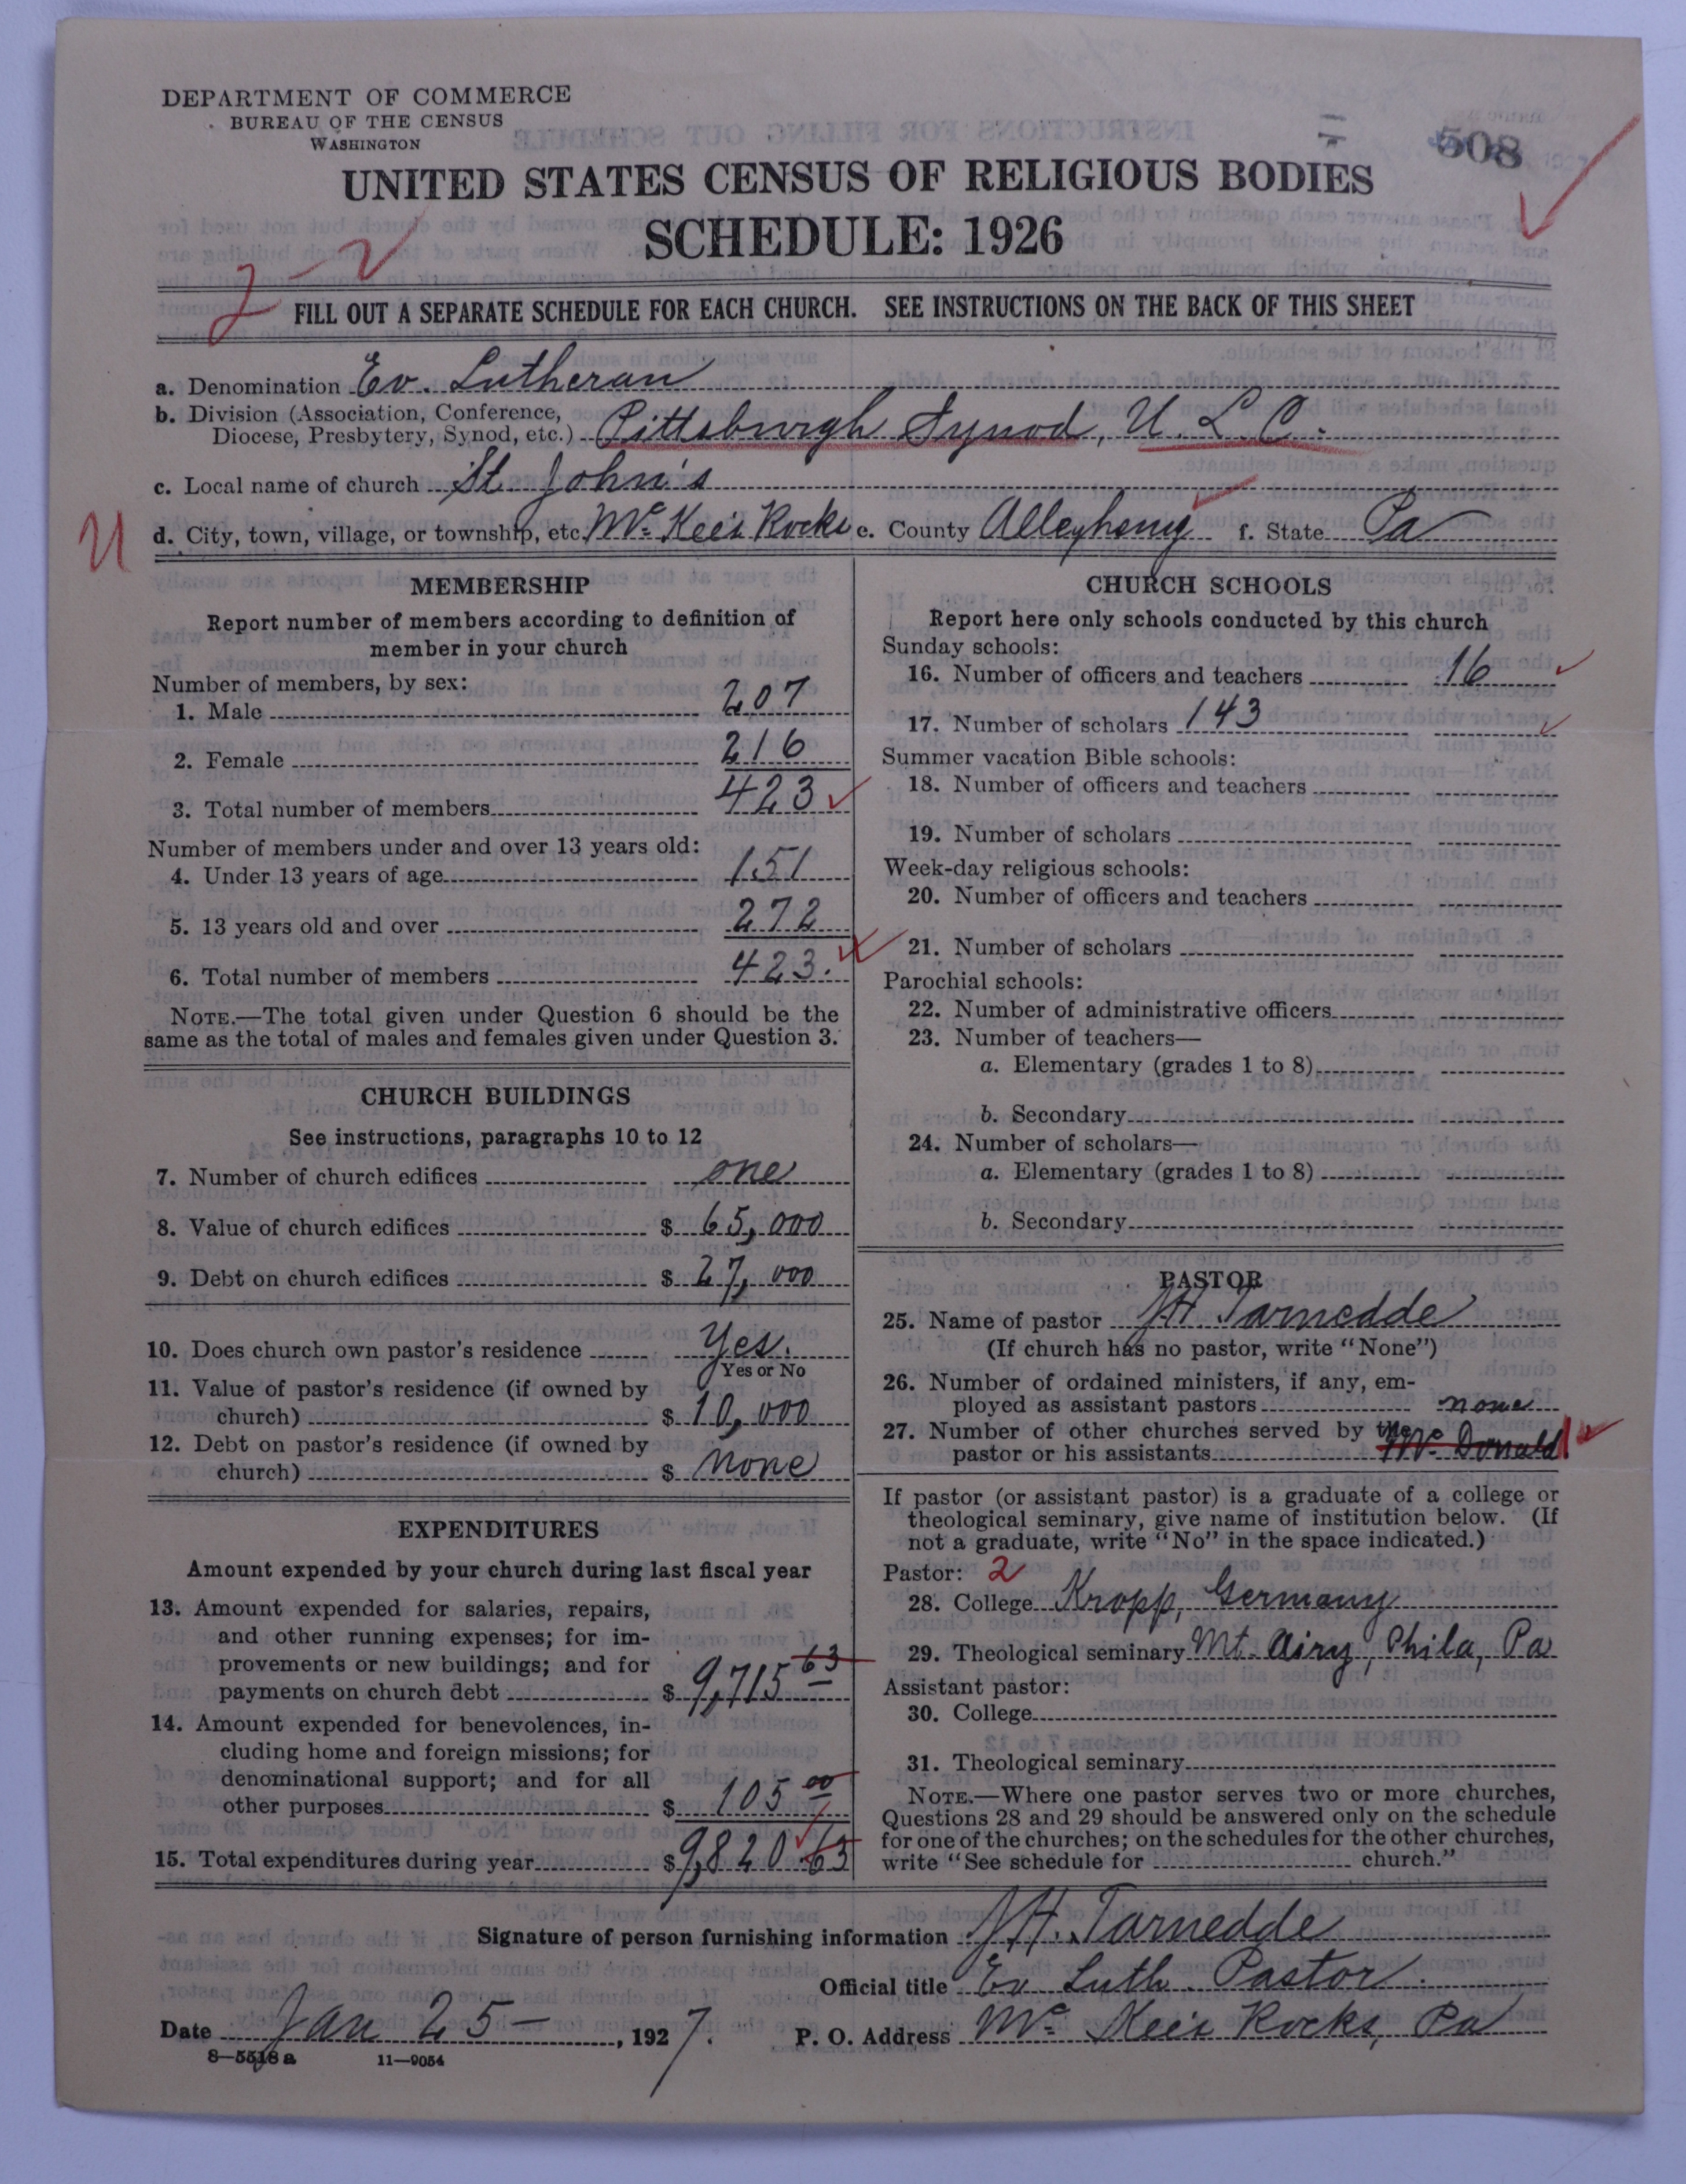 DEPARTMENT OF COMMERCE
BUREAU OF THE CENSUS
WASHINGTON
508
UNITED STATES CENSUS OF RELIGIOUS BODIES
SCHEDULE: 1926
2-2
FILL OUT A SEPARATE SCHEDULE FOR EACH CHURCH. SEE INSTRUCTIONS ON THE BACK OF THIS SHEET
a. Denomination Ev. Lutheran
b. Division (Association, Conference, Diocese, Presbytery, Synod, etc.) Pittsburgh Synod, U. L. C.
c. Local name of church St. John's
U d. City, town, village, or township, etc. Mc Kees Rocks e. County Allegheny f. State Pa
MEMBERSHIP
Report number of members according to definition of
member in your church
Number of members, by sex:
1. Male 207
2. Female 216
3. Total number of members 423
Number of members under and over 13 years old:
4. Under 13 years of age 151
5. 13 years old and over 272
6. Total number of members 423.
NOTE.—The total given under Question 6 should be the
same as the total of males and females given under Question 3.
CHURCH BUILDINGS
See instructions, paragraphs 10 to 12
7. Number of church edifices one
8. Value of church edifices $ 65,000
9. Debt on church edifices $ 27,000
10. Does church own pastor's residence Yes.
Yes or No
11. Value of pastor's residence (if owned by
church) $ 10,000
12. Debt on pastor's residence (if owned by
church) $ none
EXPENDITURES
Amount expended by your church during last fiscal year
13. Amount expended for salaries, repairs,
and other running expenses; for im-
provements or new buildings; and for
payments on church debt $ 9,715 63
14. Amount expended for benevolences, in-
cluding home and foreign missions; for
denominational support; and for all
other purposes $ 105 00
15. Total expenditures during year $ 9,820.63
CHURCH SCHOOLS
Report here only schools conducted by this church
Sunday schools:
16. Number of officers and teachers 16
17. Number of scholars 143
Summer vacation Bible schools:
18. Number of officers and teachers
19. Number of scholars
Week-day religious schools:
20. Number of officers and teachers
21. Number of scholars
Parochial schools:
22. Number of administrative officers
23. Number of teachers—
a. Elementary (grades 1 to 8)
b. Secondary
24. Number of scholars—
a. Elementary (grades 1 to 8)
b. Secondary
PASTOR
25. Name of pastor J H Tarnedde
(If church has no pastor, write "None")
26. Number of ordained ministers, if any, em-
ployed as assistant pastors none
27. Number of other churches served by the
pastor or his assistants Mc Donald 1
If pastor (or assistant pastor) is a graduate of a college or
theological seminary, give name of institution below. (If
not a graduate, write "No" in the space indicated.)
Pastor: 2
28. College Kropp, Germany
29. Theological seminary Mt. Airy, Phila, Pa
Assistant pastor:
30. College
31. Theological seminary
NOTE.—Where one pastor serves two or more churches,
Questions 28 and 29 should be answered only on the schedule
for one of the churches; on the schedules for the other churches,
write "See schedule for church."
Signature of person furnishing information J H. Tarnedde
Official title Ev Luth. Pastor.
Date Jan 25—, 1927. P. O. Address Mc Kees Rocks, Pa
8—5518 a 11—9054